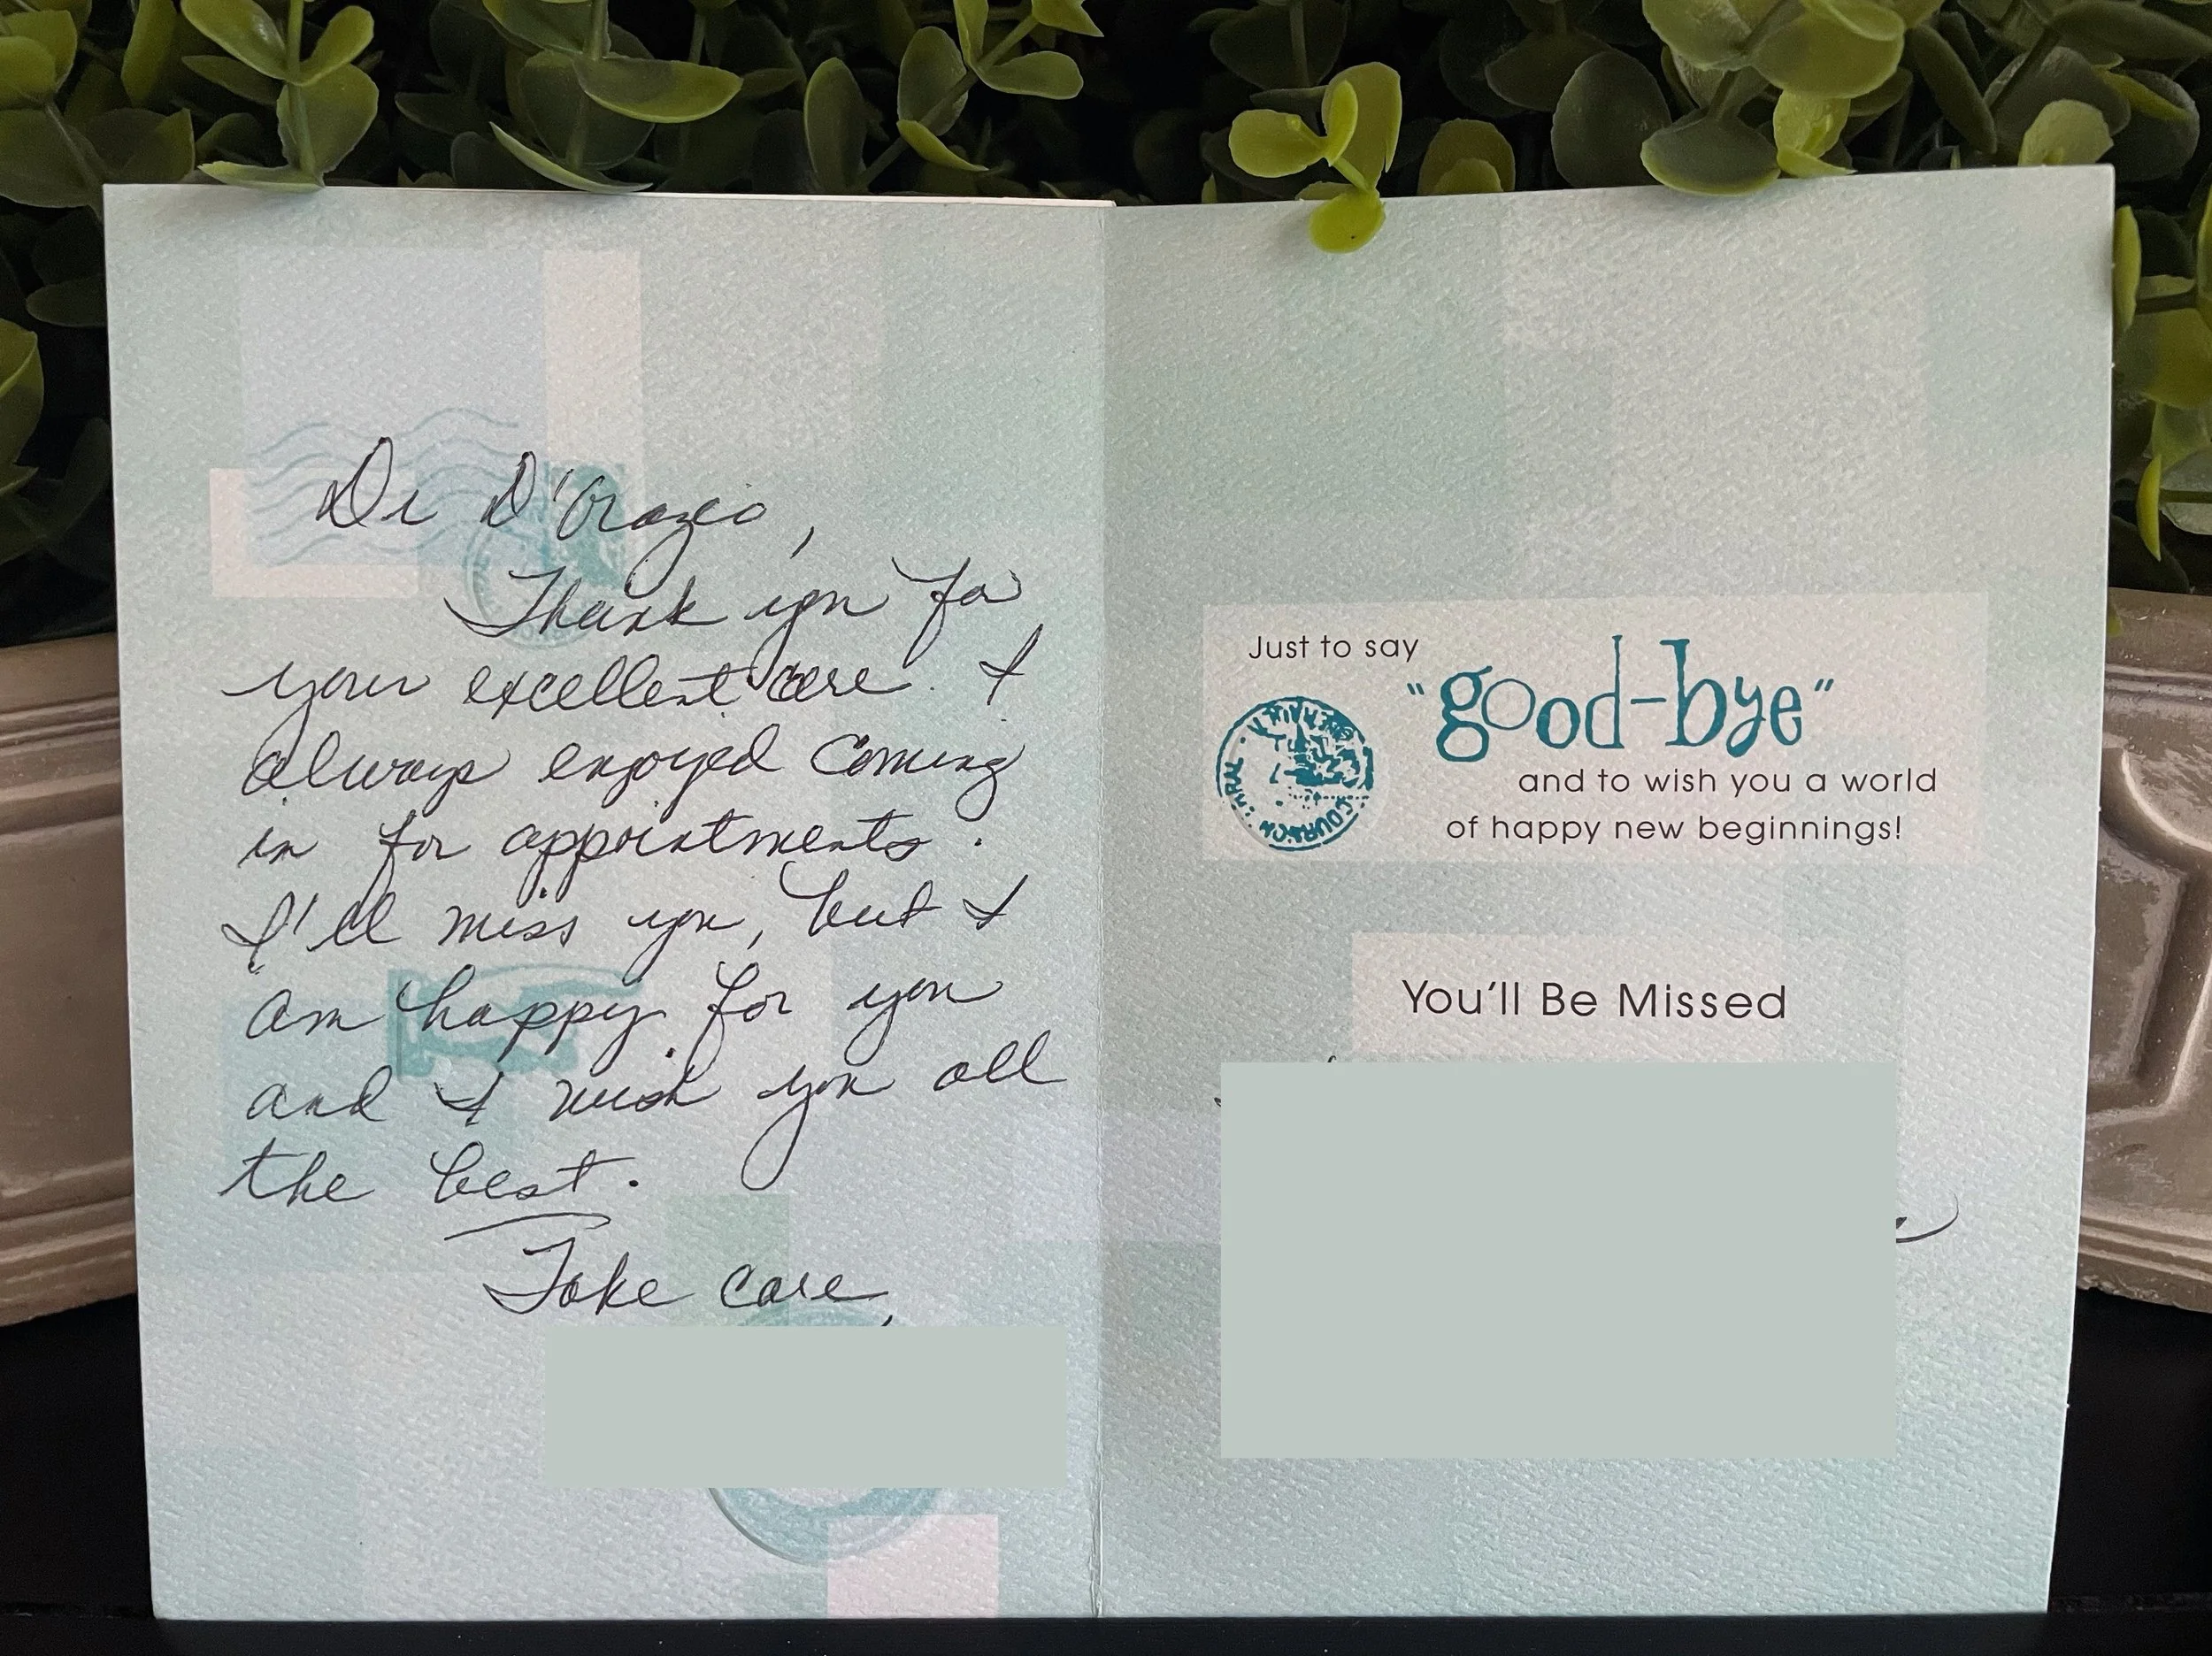 Dr D'Orazio,
Thank you for
your excellent care. I
always enjoyed coming
in for appointments.
I'll miss you, but I
am happy for you
and I wish you all
the best.
Take care,
Just to say
"good-bye"
and to wish you a world
of happy new beginnings!
You'll Be Missed